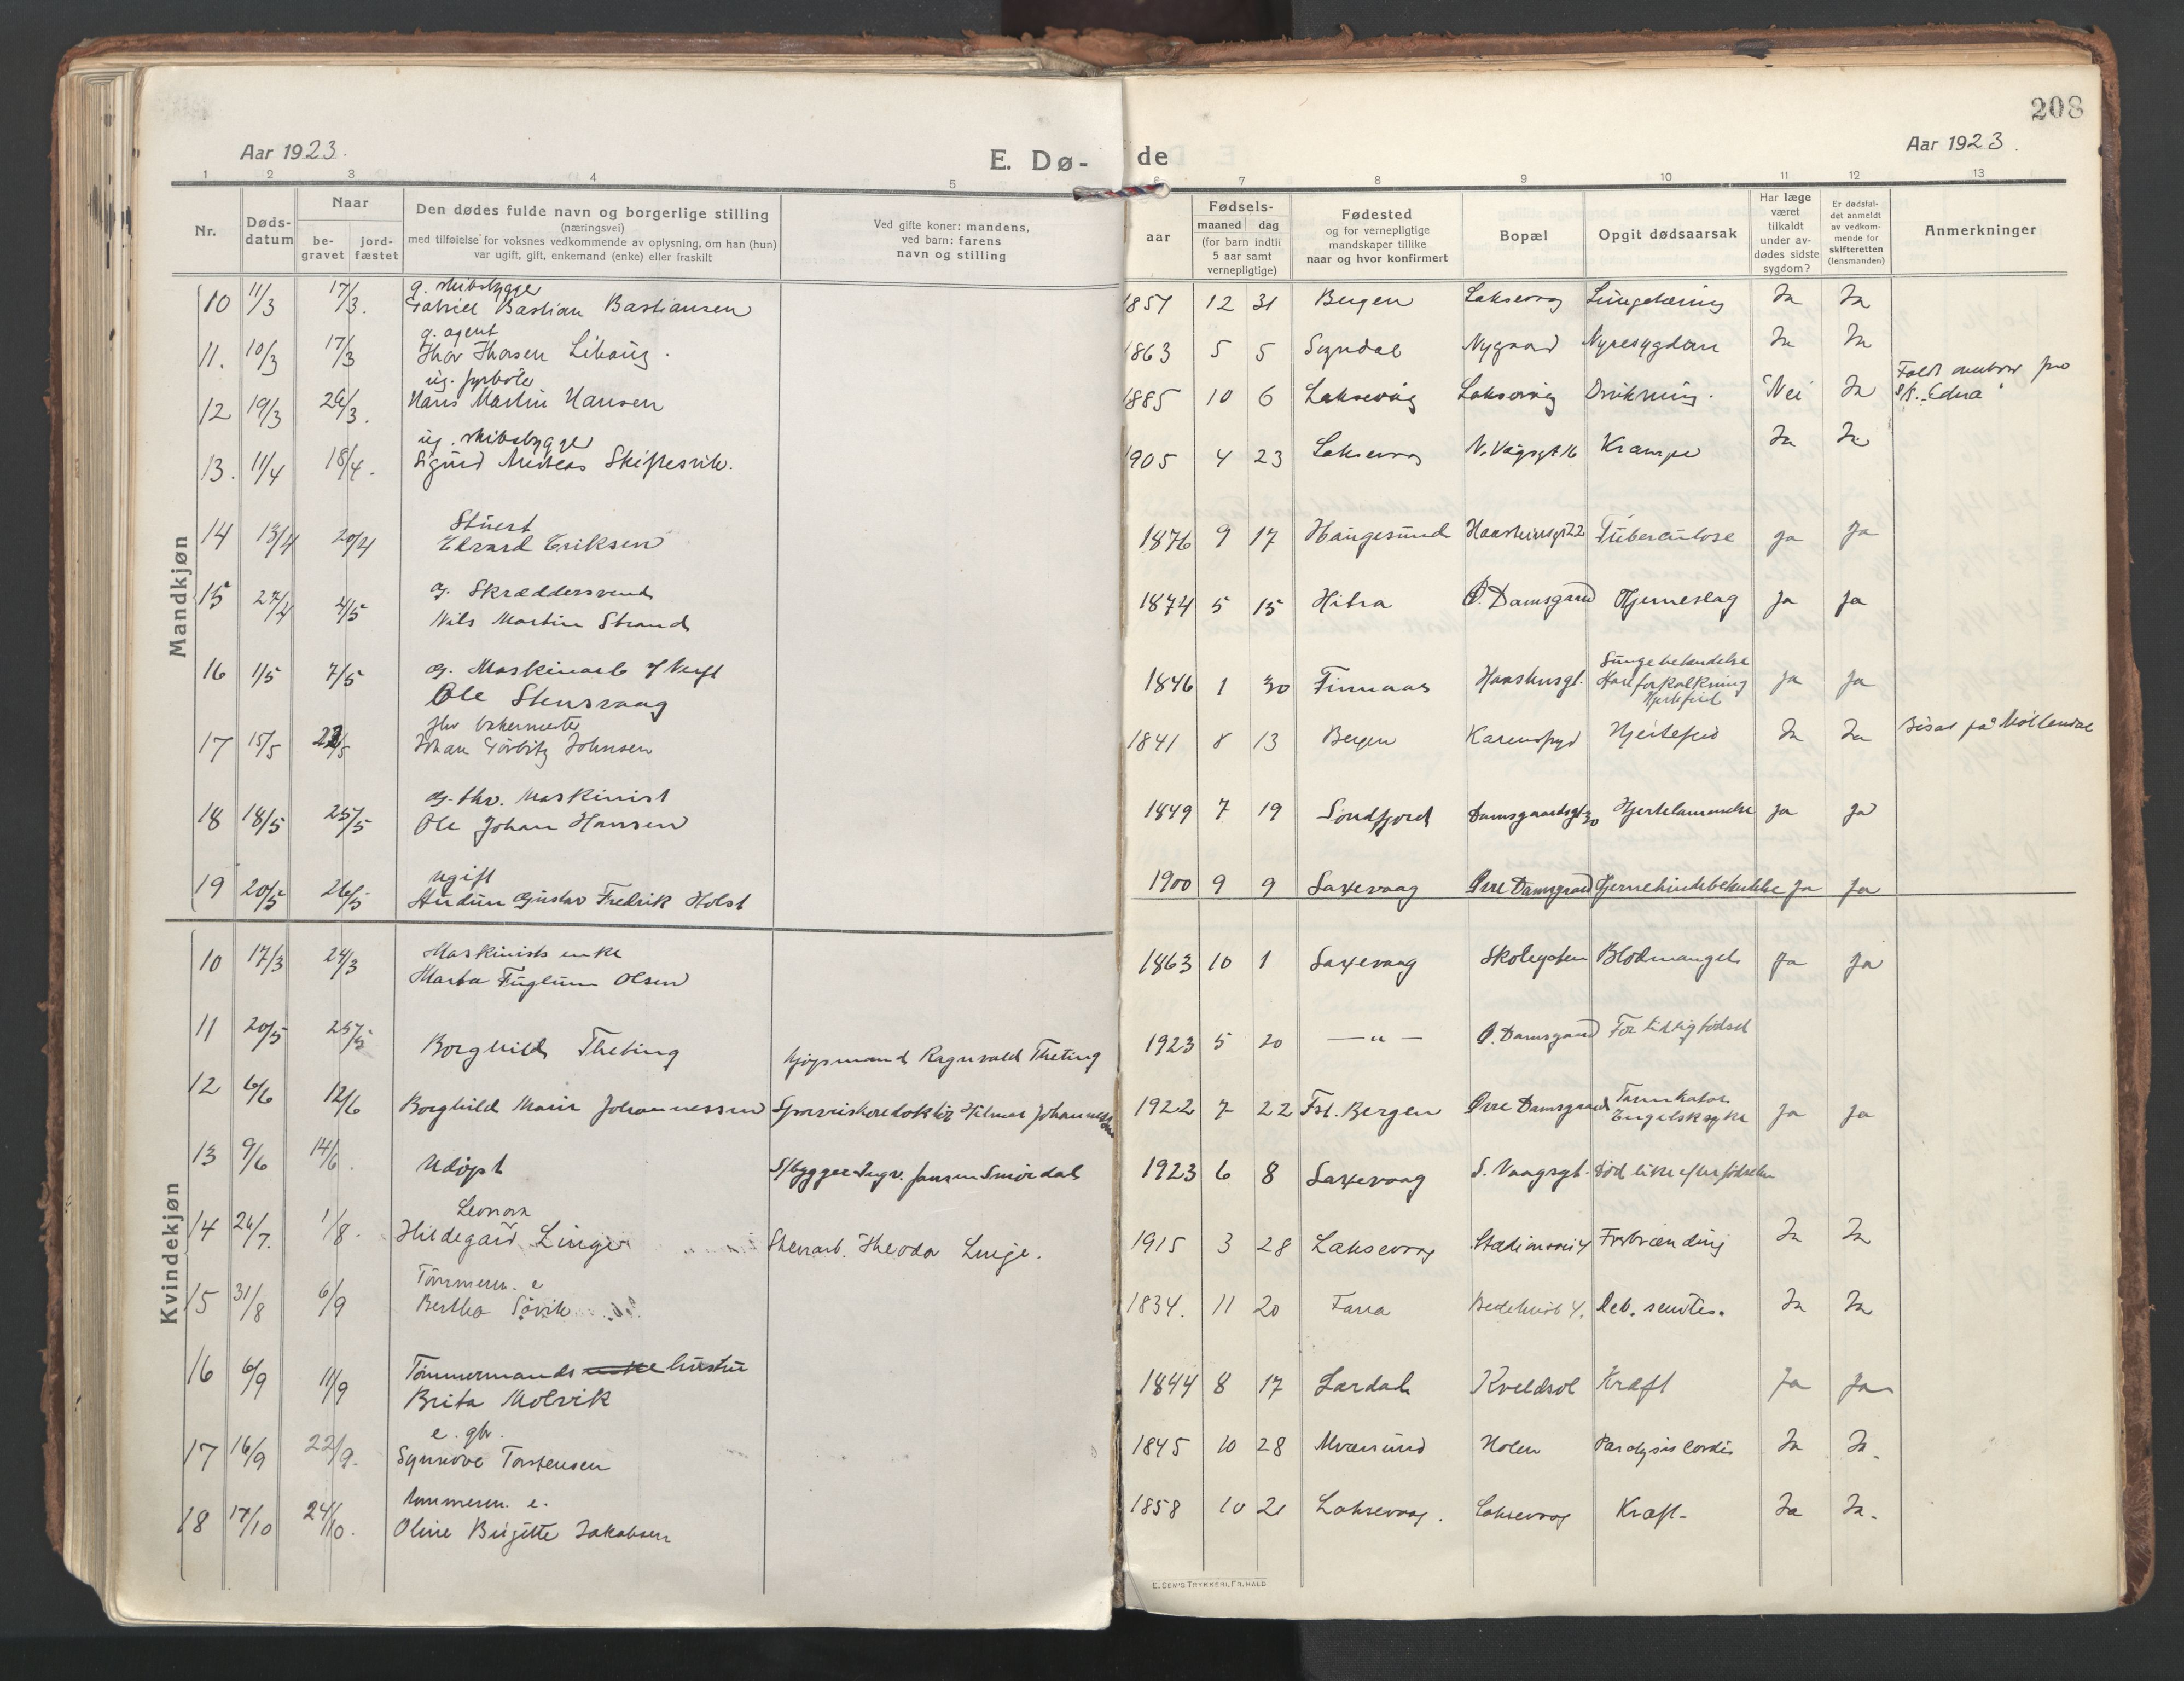 208
Aar 1923.
E. Dø-
de
Aar 1923.
1 2 3 4 5 6 7 8 9 10 11 12 13
Nr.
Døds-
datum
Naar
be-
gravet
jord-
fæstet
Den dødes fulde navn og borgerlige stilling
(næringsvei)
med tilføielse for voksnes vedkommende av oplysning, om han (hun)
var ugift, gift, enkemand (enke) eller fraskilt
Ved gifte koner: mandens,
ved barn: farens
navn og stilling
aar
Fødsels-
maaned dag
(for barn indtil
5 aar samt
vernepligtige)
Fødested
og for vernepligtige
mandskaper tillike
naar og hvor konfirmert
Bopæl
Opgit dødsaarsak
Har læge
været
tilkaldt
under av-
dødes sidste
sygdom?
Er dødsfal-
det anmeldt
av vedkom-
mende for
skifteretten
(lensmanden)
Anmerkninger
Mandkjøn
g. skibsbygge
10 11/3 17/3. Gabriel Bastian Bastiansen 1857 12 31 Bergen Laksevag Lungetæring Ja Ja
g. agent
11. 10/3 17/3 Thor Thorsen Lihaug. 1863 5 5 Sogndal Nygaard Nyresygdom Ja Ja
ug. fyrbøter
12 19/3 26/3. Hans Martin Hansen 1885 10 6 Laksevåg Laksevåg Drukning. Nei Ja Faldt overbord fra
S/K. "Edna"
ug. skibsbygge
13. 11/4 18/4. Sigurd Andreas Skiftesvik. 1905 4 23 Laksevag N. Vågsgt 16 Krampe Ja Ja
Stuert
14 13/4 20/4 Edvard Eriksen 1876 9 17 Haugesund Haasteinsgt 22 Tuberculose ja ja
g. Skræddersvend
15 27/4 4/5 Nils Martin Strand 1874 5 15 Hitra Ø. Damsgaard Hjerneslag ja ja
g. Maskinarb
16 1/5 7/5 Ole Stensvaag 1846 1 30 Finnaas Lungebetændelse
Aareforkalkning
Hjertefeil ja ja
fhv bakermester
17 15/5 22/5 Johan Johnsen 1841 8 13 Bergen Hjertefeil Ja Ja Bisat på Møllendal
g. fhv. Maskinist
18 18/5 25/5 Ole Johan Hansen 1849 7 19 Søndfjord Damsgaardsgt 30 Hjertelammelse ja ja
ugift
19 20/5 26/5 Audun Gustav Fredrik Holst 1900 9 9 Laxevaag Øvre Damsgaard Hjernehindebetændelse ja ja
Kvindekjøn
Maskinists enke
10 17/3 24/3 Marta Fuglum Olsen 1863 10 1 Laxevaag Skolegaten Blodmangel ja ja
11 20/5 25/5 Borghild Theting Kjøpmand Ragnvald Theting 1923 5 20 — " — Ø. Damsgaard For tidlig fødsel
12 6/6 12/6 Borghild Marie Johannessen Hilmar Johannessen 1922 7 22 Fst. Bergen Øvre Damsgaard Tarmkatar
Engelsksyke ja ja
13 9/6 14/6. Udøpt S/bygger Ingv. Jansen Smørdal 1923 6 8 Laxevaag S. Vaagsgt. Død like efter fødselen
Leonora
14 26/7. 1/8. Hildegard Linge Stenarb. Theodor Linge. 1915 3 28 Laksevag Stadionvei 4 Forbrænding Ja Ja
Tømmerm. e
15 31/8 6/9 Bertha Søvik 1834. 11 20 Fana Bedehusb 4. Deb. senilis. Ja Ja
Tømmermands enke hustru
16 6/9 11/9 Brita Molvik 1844 8 17 Lærdal Kveldsol Kræft ja ja
e. gbr.
17 16/9 22/9. Synnøve Torstensen 1845 10 28 Alversund Holen Paralysis cordis Ja Ja.
tømmerm. e.
18 17/10 24/10. Oline Birgitte Jakobsen 1858 10 21 Laksevaag. Laksevag Kræft - Ja Ja.
E. SEM'S TRYKKERI, FR.HALD